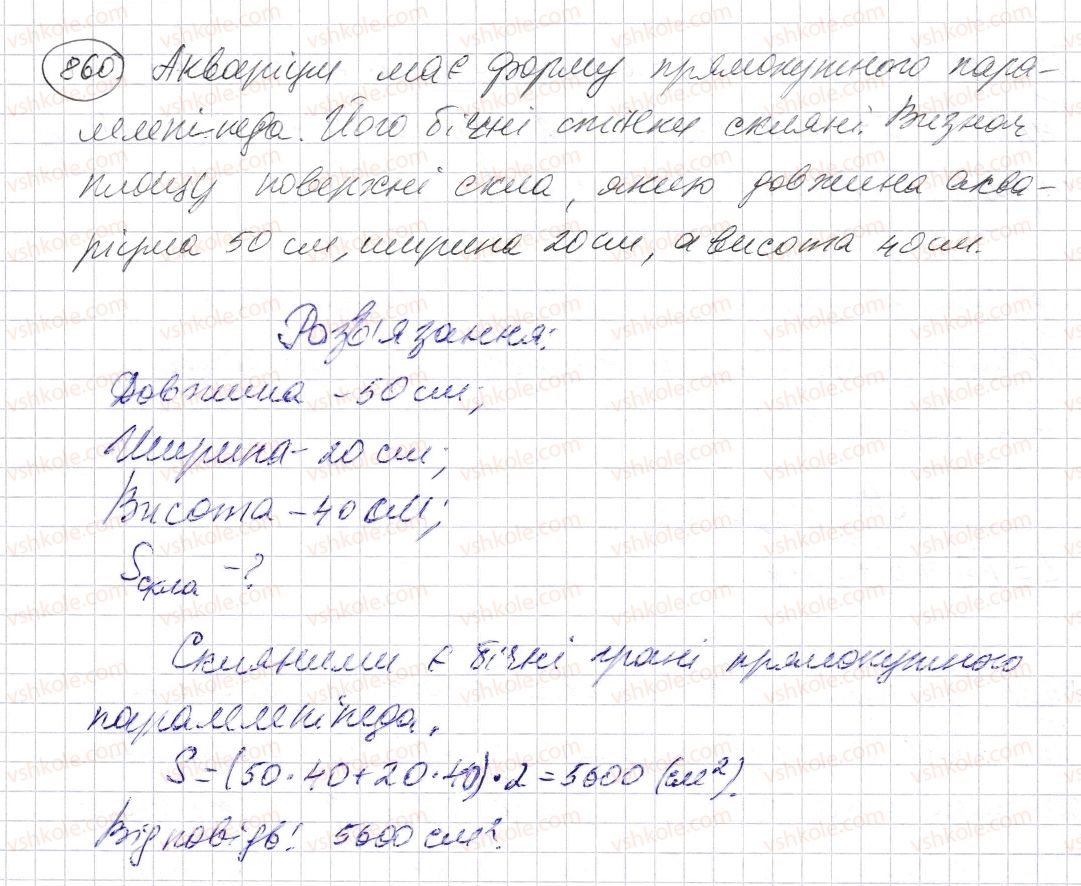 860. Акваріум має форму прямокутного пара-
лелепіпеда. Його бічні стінки скляні. Визнач
площу поверхні скла, якщо довжина аква-
ріума 50 см, ширина 20 см, а висота 40 см.
Розв'язання:
Довжина - 50 см;
Ширина - 20 см;
Висота - 40 см;
Sскла - ?
Скляними є бічні грані прямокутного
паралелепіпеда.
S = (50·40+20·40)·2 = 5600 (см²).
Відповідь: 5600 см².